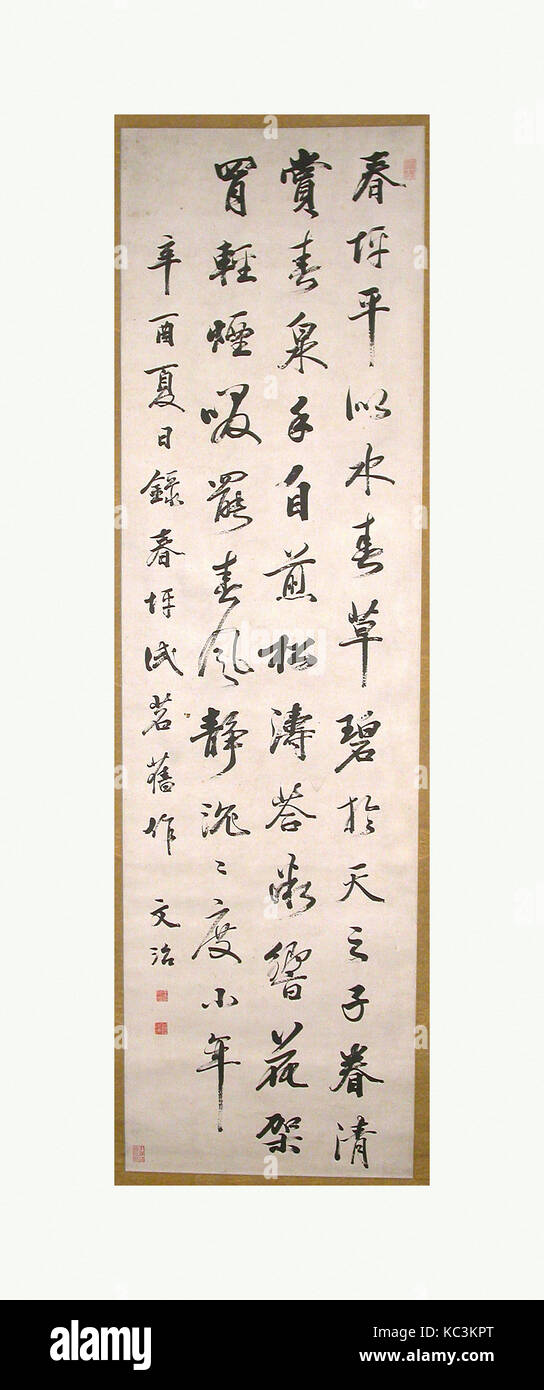 春坪平似水春草碧於天之子眷清
賞春泉手自煎松濤荅漸響花架
罥輕煙啜罷春風靜沉〻度小年
辛酉夏日錄春坪試茗舊作 文治
alamy
Image ID: KC3KPT
www.alamy.com